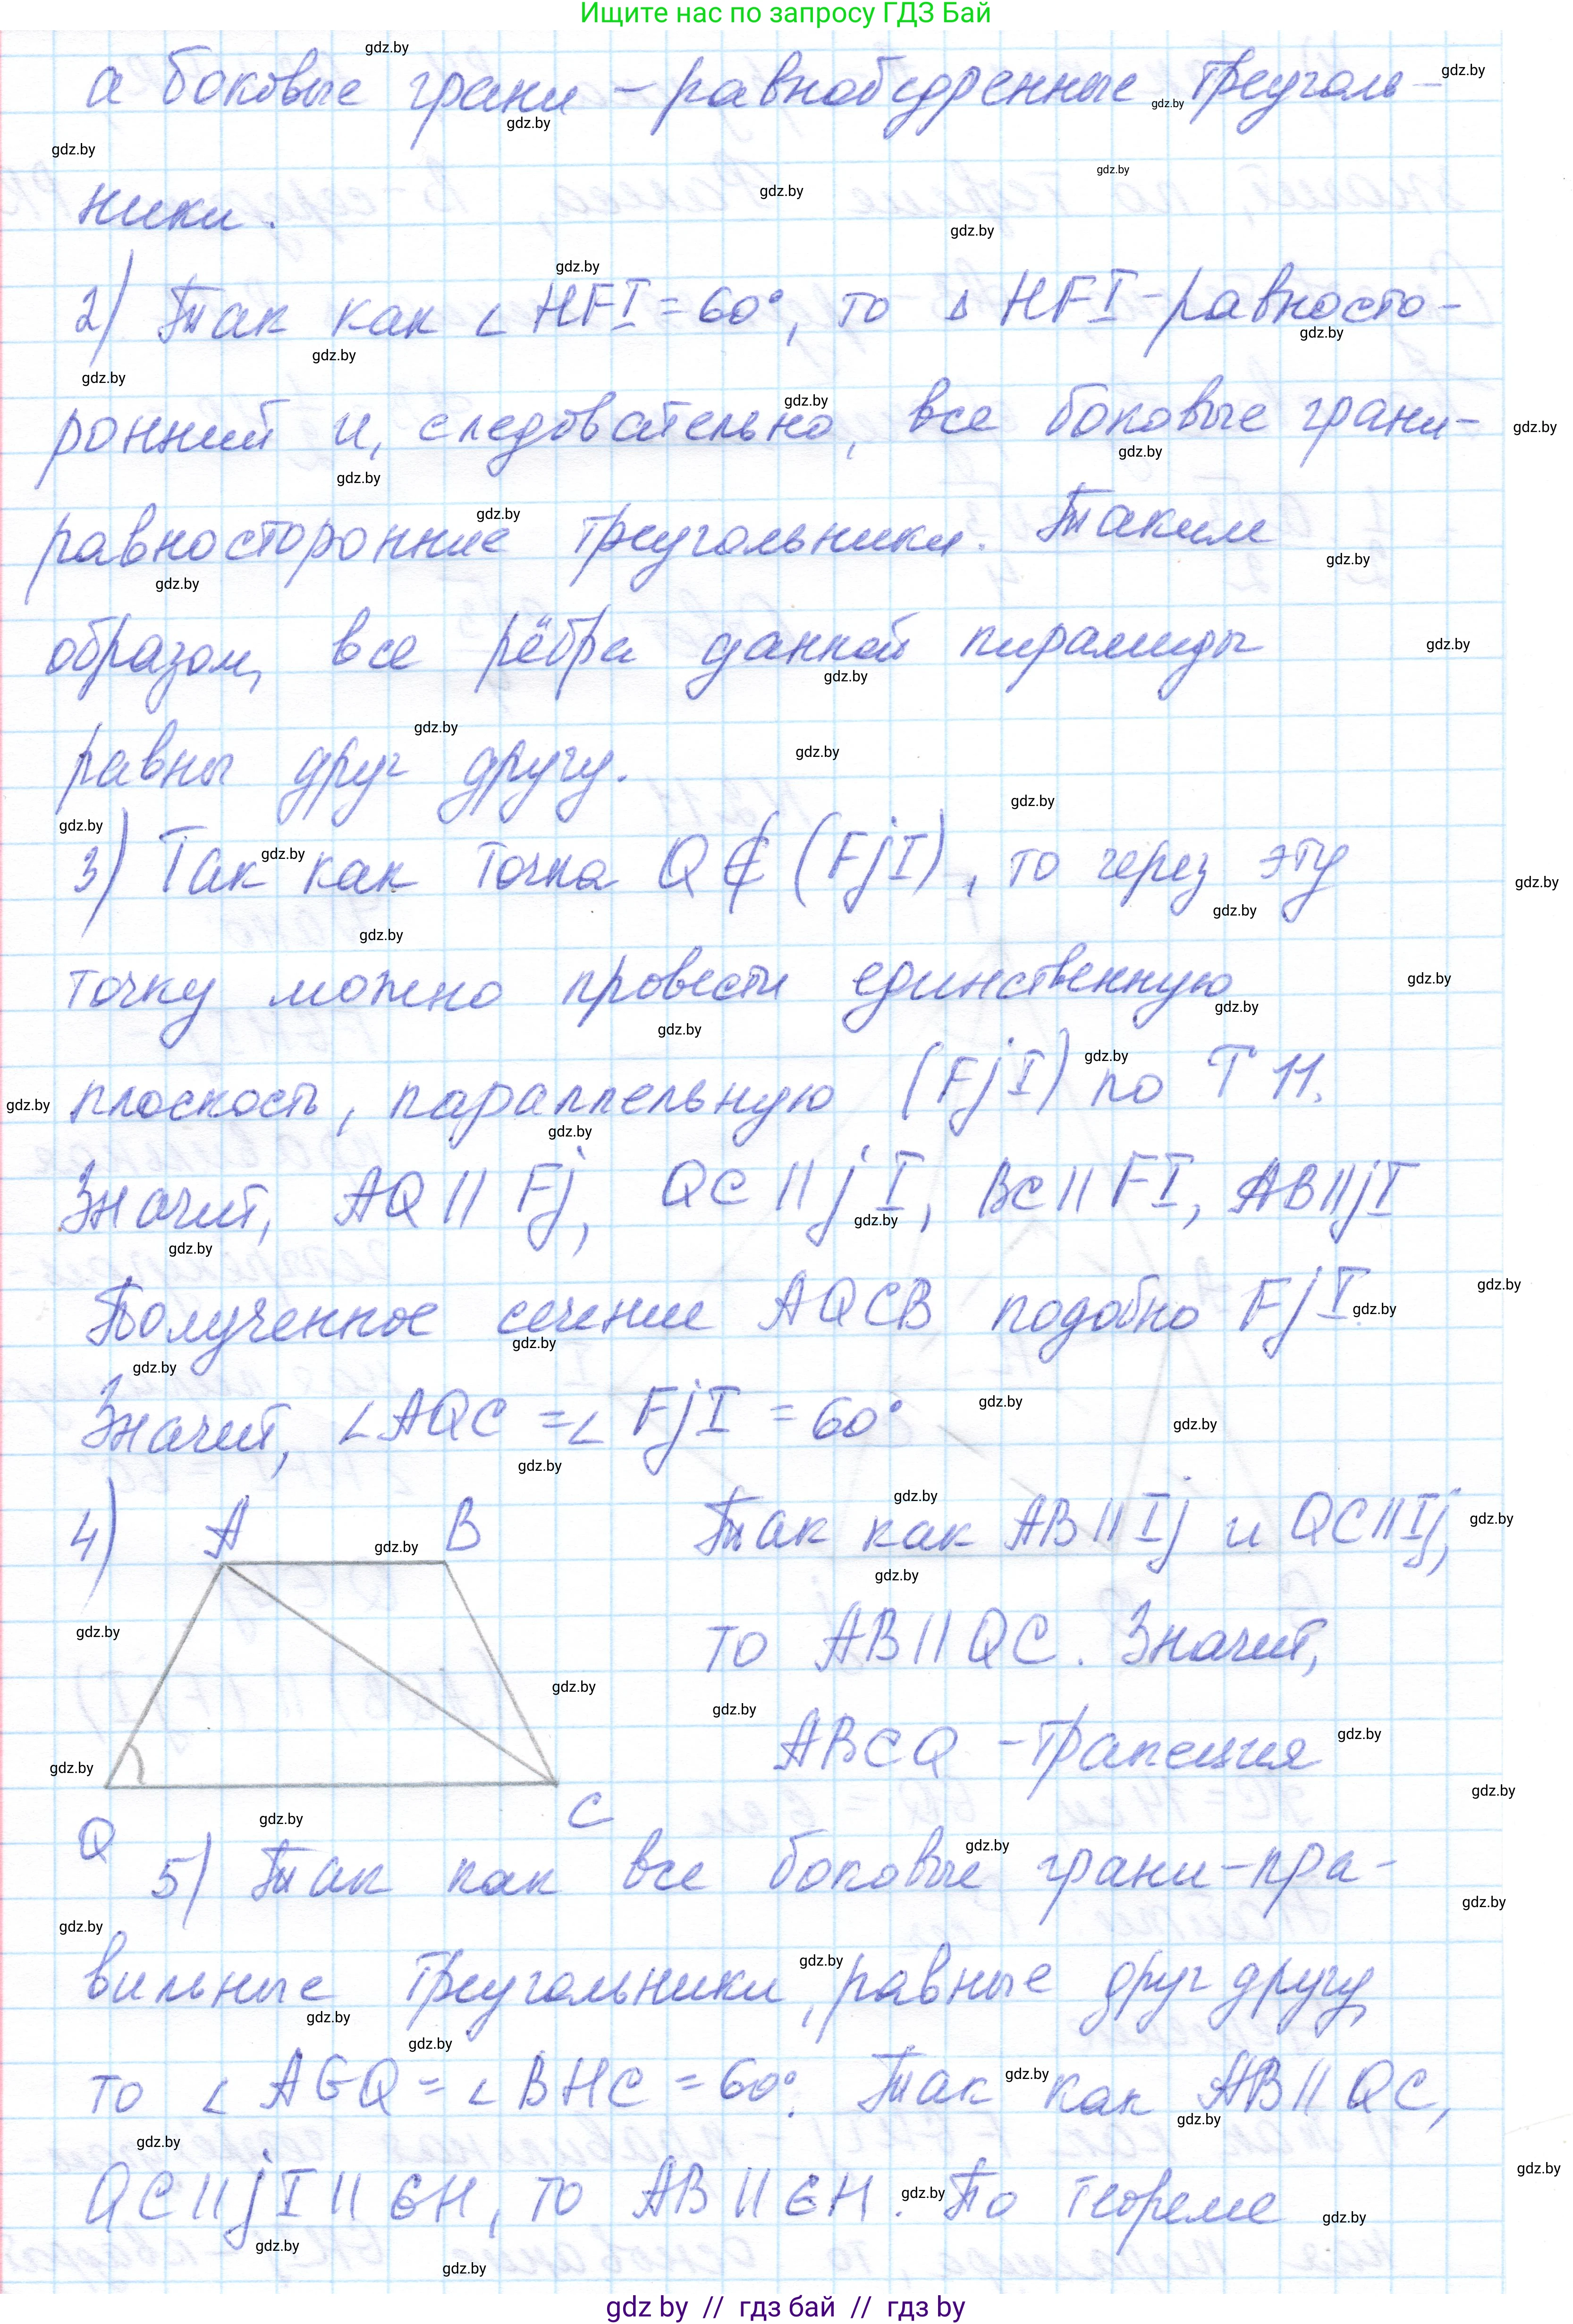 Ищите нас по запросу ГДЗ Бай
а боковые грани – равнобедренные треуголь-
ники.
2) Так как ∠ HFI = 60°, то Δ HFI - равносто-
ронний и, следовательно, все боковые грани-
равносторонние треугольники. Таким
образом, все рёбра данной пирамиды
равны друг другу.
3) Так как точка Q ∉ (FjI), то через эту
точку можно провести единственную
плоскость, параллельную (FjI) по Т 11.
Значит, AQ || Fj, QC || jI, BC || FI, AB || jI
Полученное сечение AQCB подобно FjI
Значит, ∠AQC = ∠ FjI = 60°
4) A B Так как AB || Ij и QC || Ij,
то AB || QC. Значит,
ABCQ – трапеция
Q C
5) Так как все боковые грани-пра-
вильные треугольники, равные друг другу
то ∠ AGQ = ∠ BHC = 60°. Так как AB || QC,
QC || jI || GH, то AB || GH. По теореме
gdz by // гдз бай // гдз by